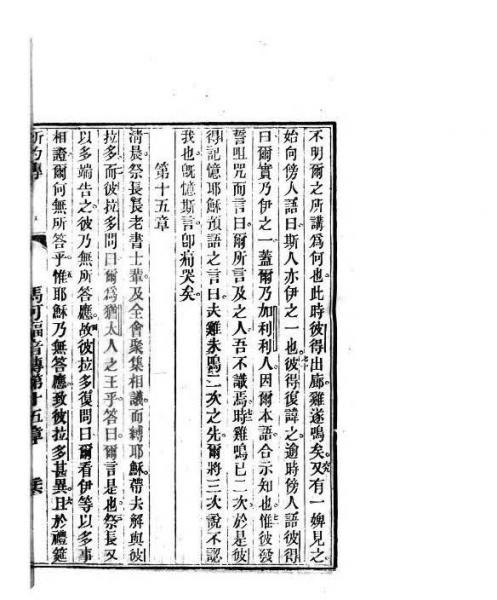 不明爾之所講爲何也此時彼得出廊雞遂鳴矣又有一婢見之
始向傍人語曰斯人亦伊之一也彼得復諱之逾時傍人語彼得
曰爾實乃伊之一蓋爾乃加利利人因爾本語合示知也惟彼發
誓咀咒而言曰爾所言及之人吾不識焉時雞鳴已二次於是彼
得記憶耶穌預語之言曰夫雞未鳴二次之先爾將三次說不認
我也既憶斯言卽痛哭矣
第十五章
淸晨祭長長老書士輩及全會聚集相議而縛耶穌帶去解與彼
拉多而彼拉多問曰爾爲猶太人之王乎答曰爾言是也祭長又
以多端告之彼乃無所答應故彼拉多復問曰爾看伊等以多事
相證爾何無所答乎惟耶穌乃無答應致彼拉多甚異且於禮筵
馬可福音傳第十五章